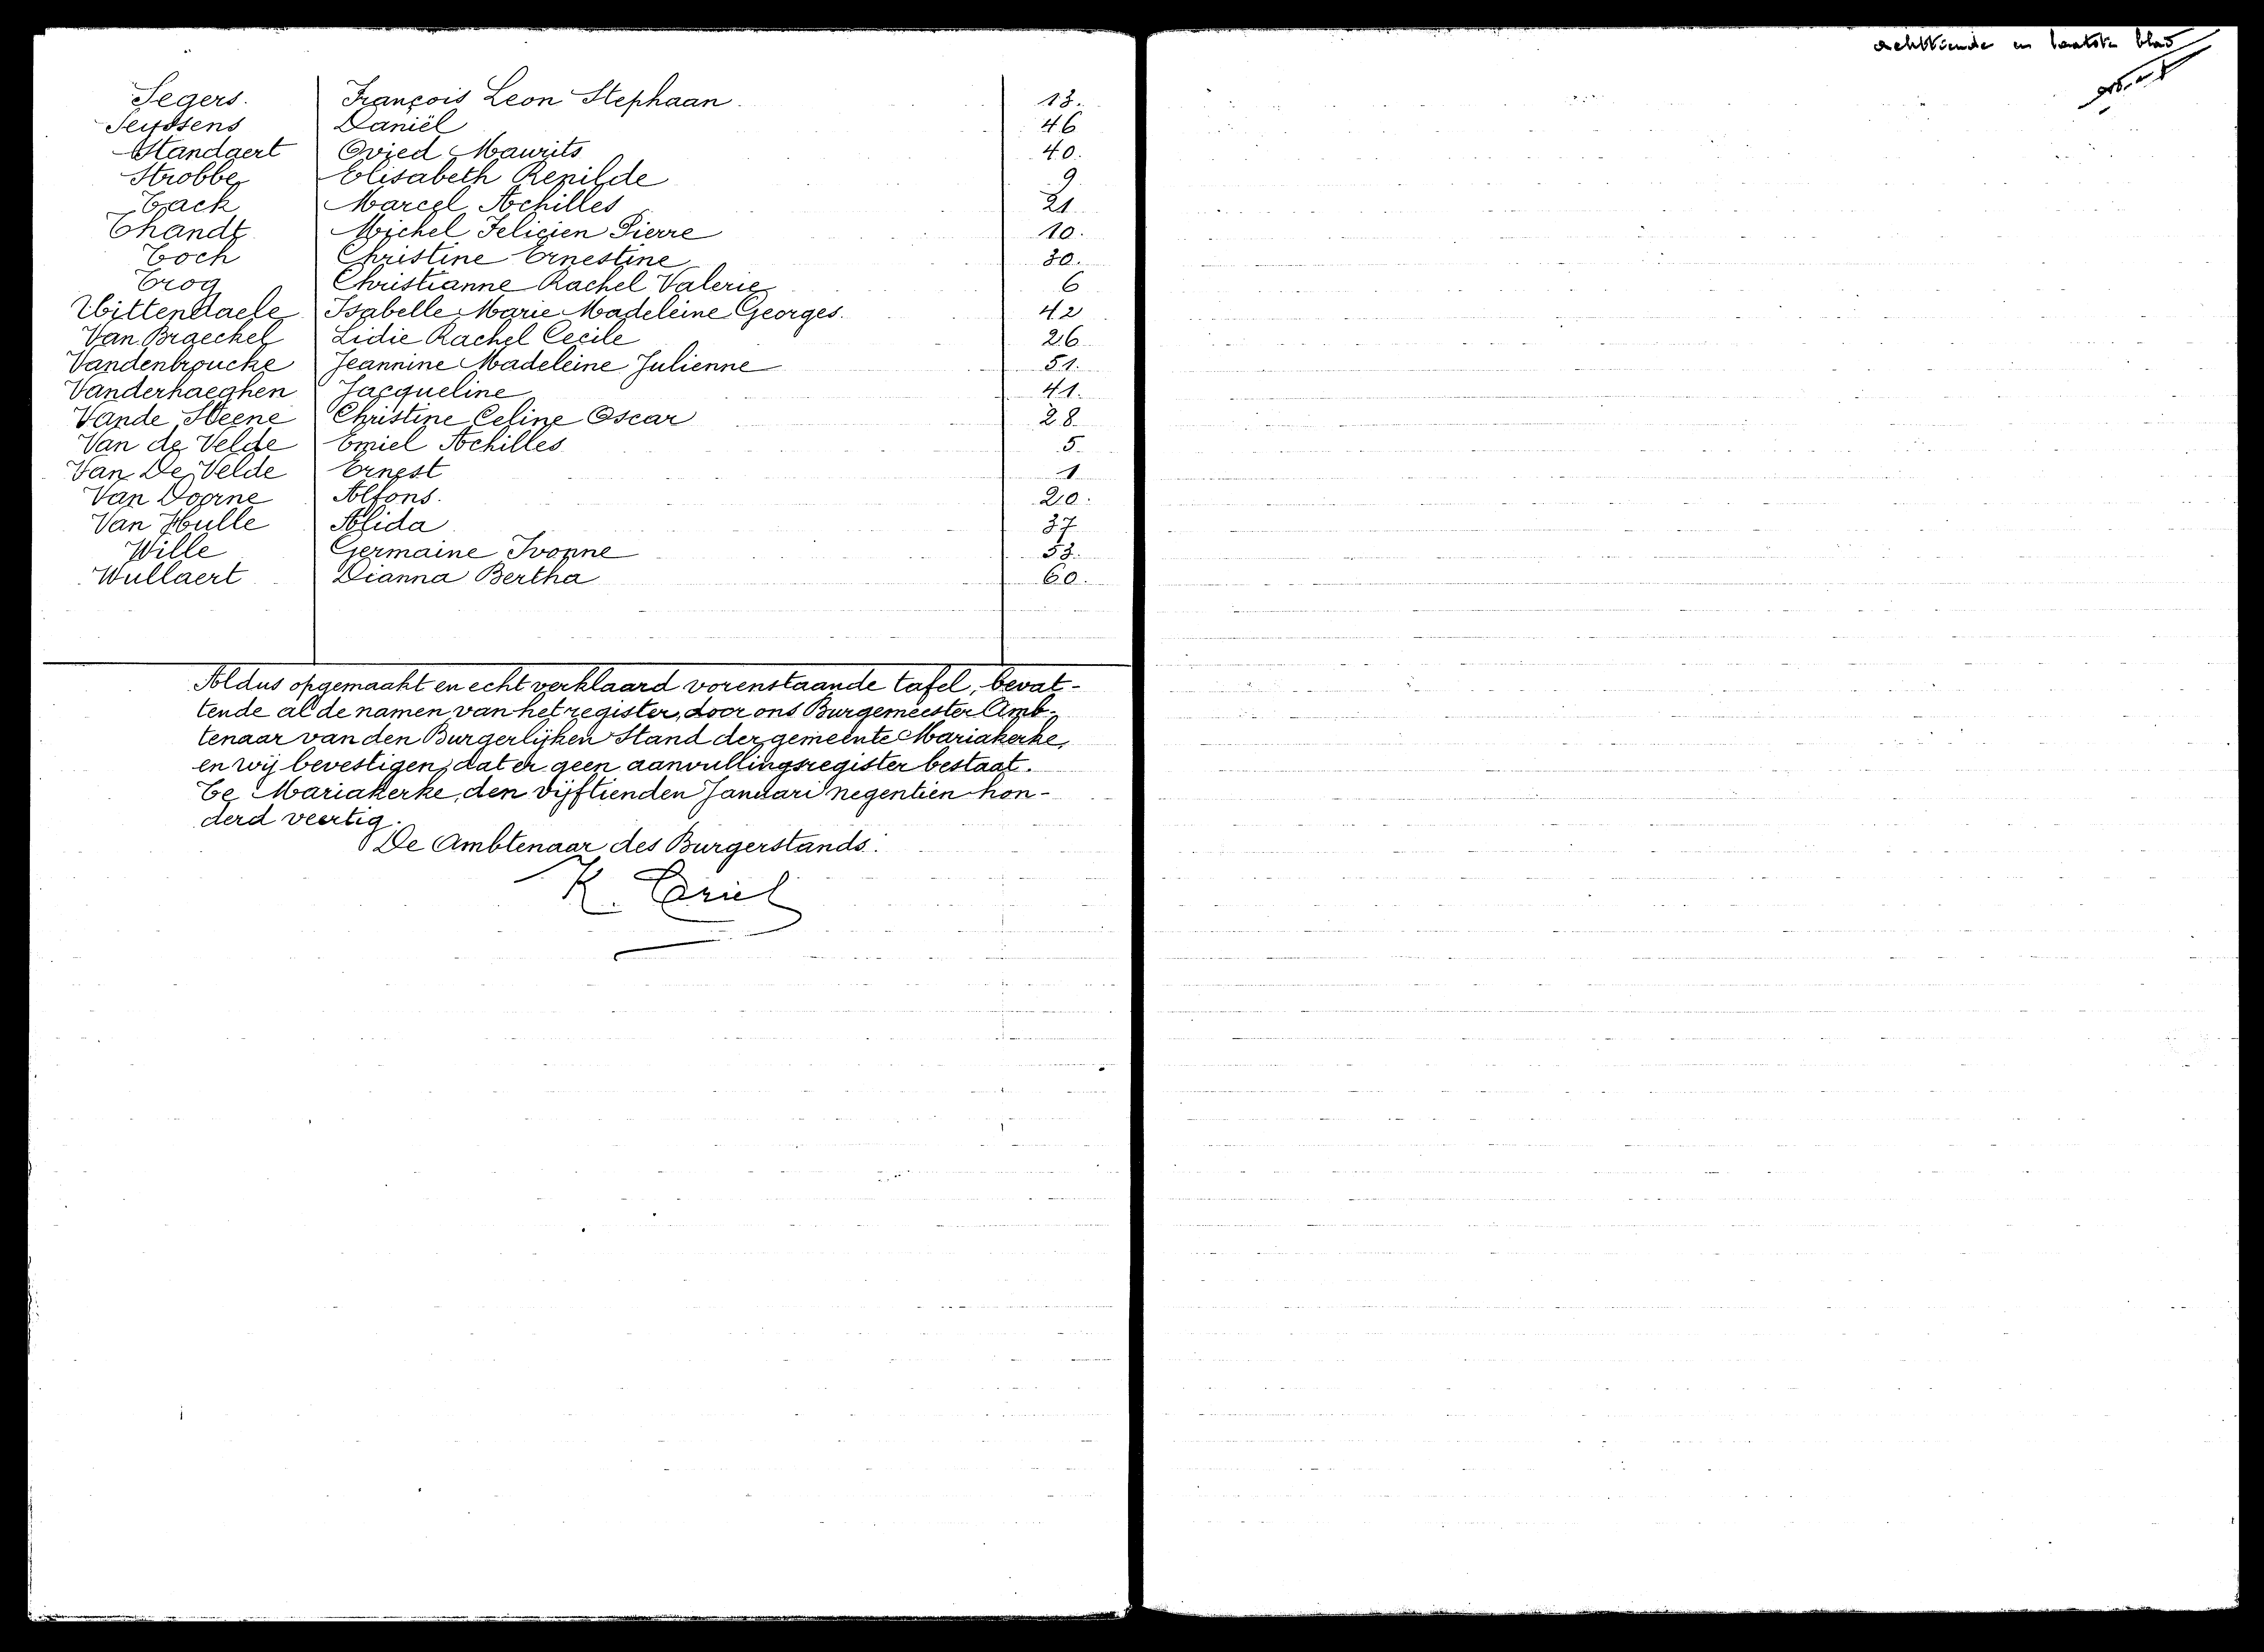 Segers. François Leon Stephaan. 13.
Seyssens Daniël 46
Standaert Ovied Maurits 40.
Strobbe Elisabeth Renilde 9
Tack Marcel Achilles 21
Thandt Michel Felicien Pierre 10.
Toch Christine Ernestine 30.
Trog Christianne Rachel Valerie 6
Uittendaele Isabelle Marie Madeleine Georges. 42
Van Braeckel Lidie Rachel Cecile 26
Vandenbroucke Jeannine Madeleine Julienne 51.
Vanderhaeghen Jacqueline 41.
Vande Steene Christine Celine Oscar 28
Van de Velde Emiel Achilles 5
Van De Velde Ernest 1
Van Doorne Alfons. 20.
Van Hulle Alida 37
Wille Germaine Ivonne 53.
Wullaert Dianna Bertha 60.
Aldus opgemaakt en echt verklaard vorenstaande tafel, bevat-
tende al de namen van het register, door ons Burgemeester Amb-
tenaar van den Burgerlijken Stand der gemeente Mariakerke,
en wij bevestigen, dat er geen aanvullingsregister bestaat.
Te Mariakerke, den vijftienden Januari negentien hon-
derd veertig.
De Ambtenaar des Burgerstands:
K.
achttiende en laatste blad